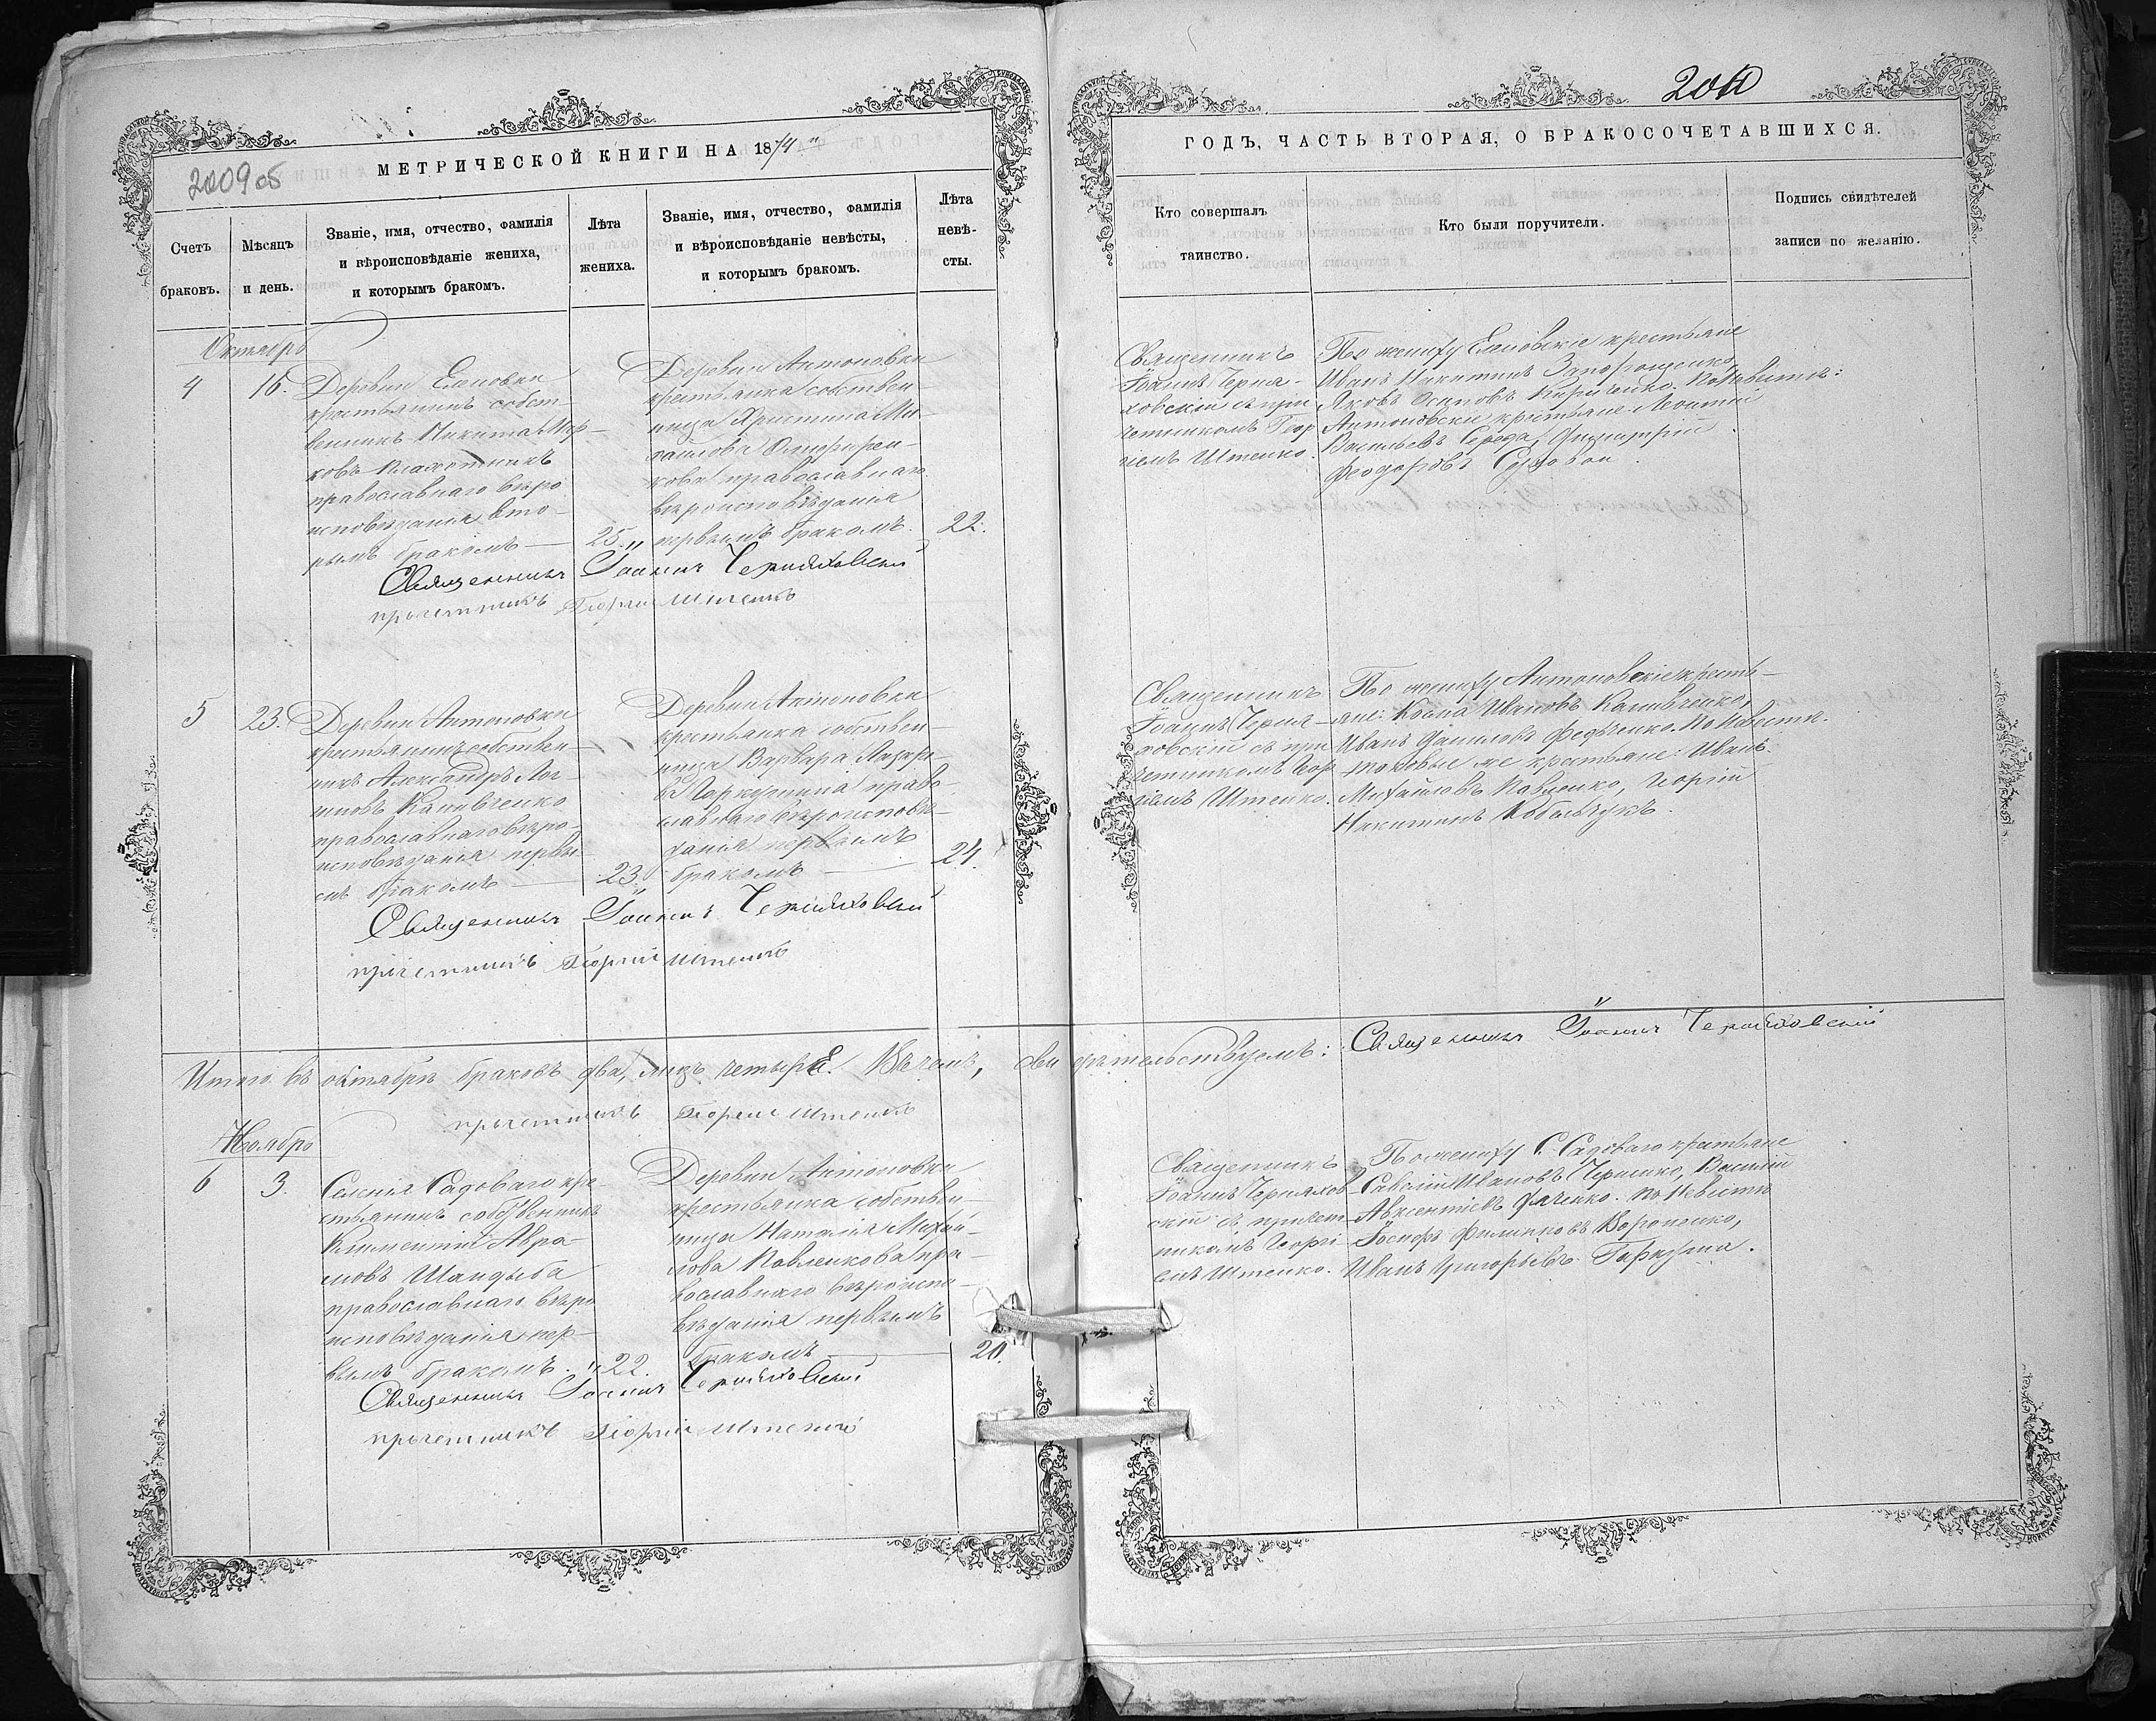 МЕТРИЧЕСКОЙ КНИГИ НА 1874
200 об
Счетъ браковъ.
Мѣсяцъ и день.
Званіе, имя, отчество, фамилія и вѣроисповѣданіе жениха, и которымъ бракомъ.
Лѣта жениха.
Званіе, имя, отчество, фамилія и вѣроисповѣданіе невѣсты, и которымъ бракомъ.
Лѣта невѣ-
сты.
Октябрь
4
16.
Деревни Еленовки
крестьянинъ собст-
венникъ Никита Мар-
ковъ
православнаго вѣро
исповѣданія вто-
рымъ бракомъ
25.
Деревни Антоновки
крестьянка собствен-
ница Христина Ми-
хайлова
кова православнаго
вѣроисповѣданія
первымъ бракомъ.
22.
Священникъ Іоаннъ Черняховскій
причетникъ Георгій Штенко
5
23.
Деревни Антоновки
крестьянинъ собствен-
никъ Александръ Лог-
иновъ Каливченко
православнаго вѣро-
исповѣданія первы-
мъ бракомъ
23.
Деревни Антоновки
крестьянка собствен-
ница Варвара
право-
славнаго вѣроисповѣ-
данія первымъ
бракомъ
21.
Священникъ Іоаннъ Черняховскій
причетникъ Георгій Штенко
Итого въ октябрѣ браковъ два, лицъ четырЕ. Въ чемъ, свидѣтельствуемъ: Священникъ Іоаннъ Черняховскій
причетникъ Георгій Штенко
Ноябрь
6
3.
Селенія Садоваго кре-
стьянинъ собственникъ
Климентій Авра-
мовъ Шандыба
православнаго вѣро
исповѣданія пер-
вымъ бракомъ.
22.
Деревни Антоновки
крестьянка собствен-
ница Наталія Михай-
лова Павленкова пра-
вославнаго вѣроиспо-
вѣданія первымъ
бракомъ
20.
Священникъ Іоаннъ Черняховскій
причетникъ Георгій Штенко
ГОДЪ, ЧАСТЬ ВТОРАЯ, О БРАКОСОЧЕТАВШИХСЯ.
Кто совершалъ таинство.
Кто были поручители.
Подпись свидѣтелей записи по желанію.
Священникъ
Іоаннъ Черня-
ховскій съ при
четникомъ Геор
гіемъ Штенко.
По жениху Еленовскіе крестьяне
Иванъ Никитинъ Запорощенко,
Яковъ Осиповъ Кириченко. По невѣстѣ:
Антоновскіе крестьяне Леонтій
Васильевъ Середа, Димитрій
Феодоровъ
Священникъ
Іоаннъ Черня-
ховскій съ при
четникомъ Геор
гіемъ Штенко.
По жениху Антоновскіе кресть-
яне: Козма Ивановъ Каливченко,
Иванъ Даниловъ Федченко. По невѣстѣ.
таковые же крестьяне: Иванъ
Михайловъ Павленко, Георгій
Никитинъ Кобыльчукъ.
Священникъ
Іоаннъ Черняхов-
скій съ причет-
никомъ Георгі-
емъ Штенко.
По жениху С. Садоваго крестьяне
Савелій Ивановъ Черненко, Василій
Авксентіевъ Дяченко. По невѣстѣ
Іосифъ Филиповъ Вороненко,
Иванъ Григорьевъ Гаркуша.